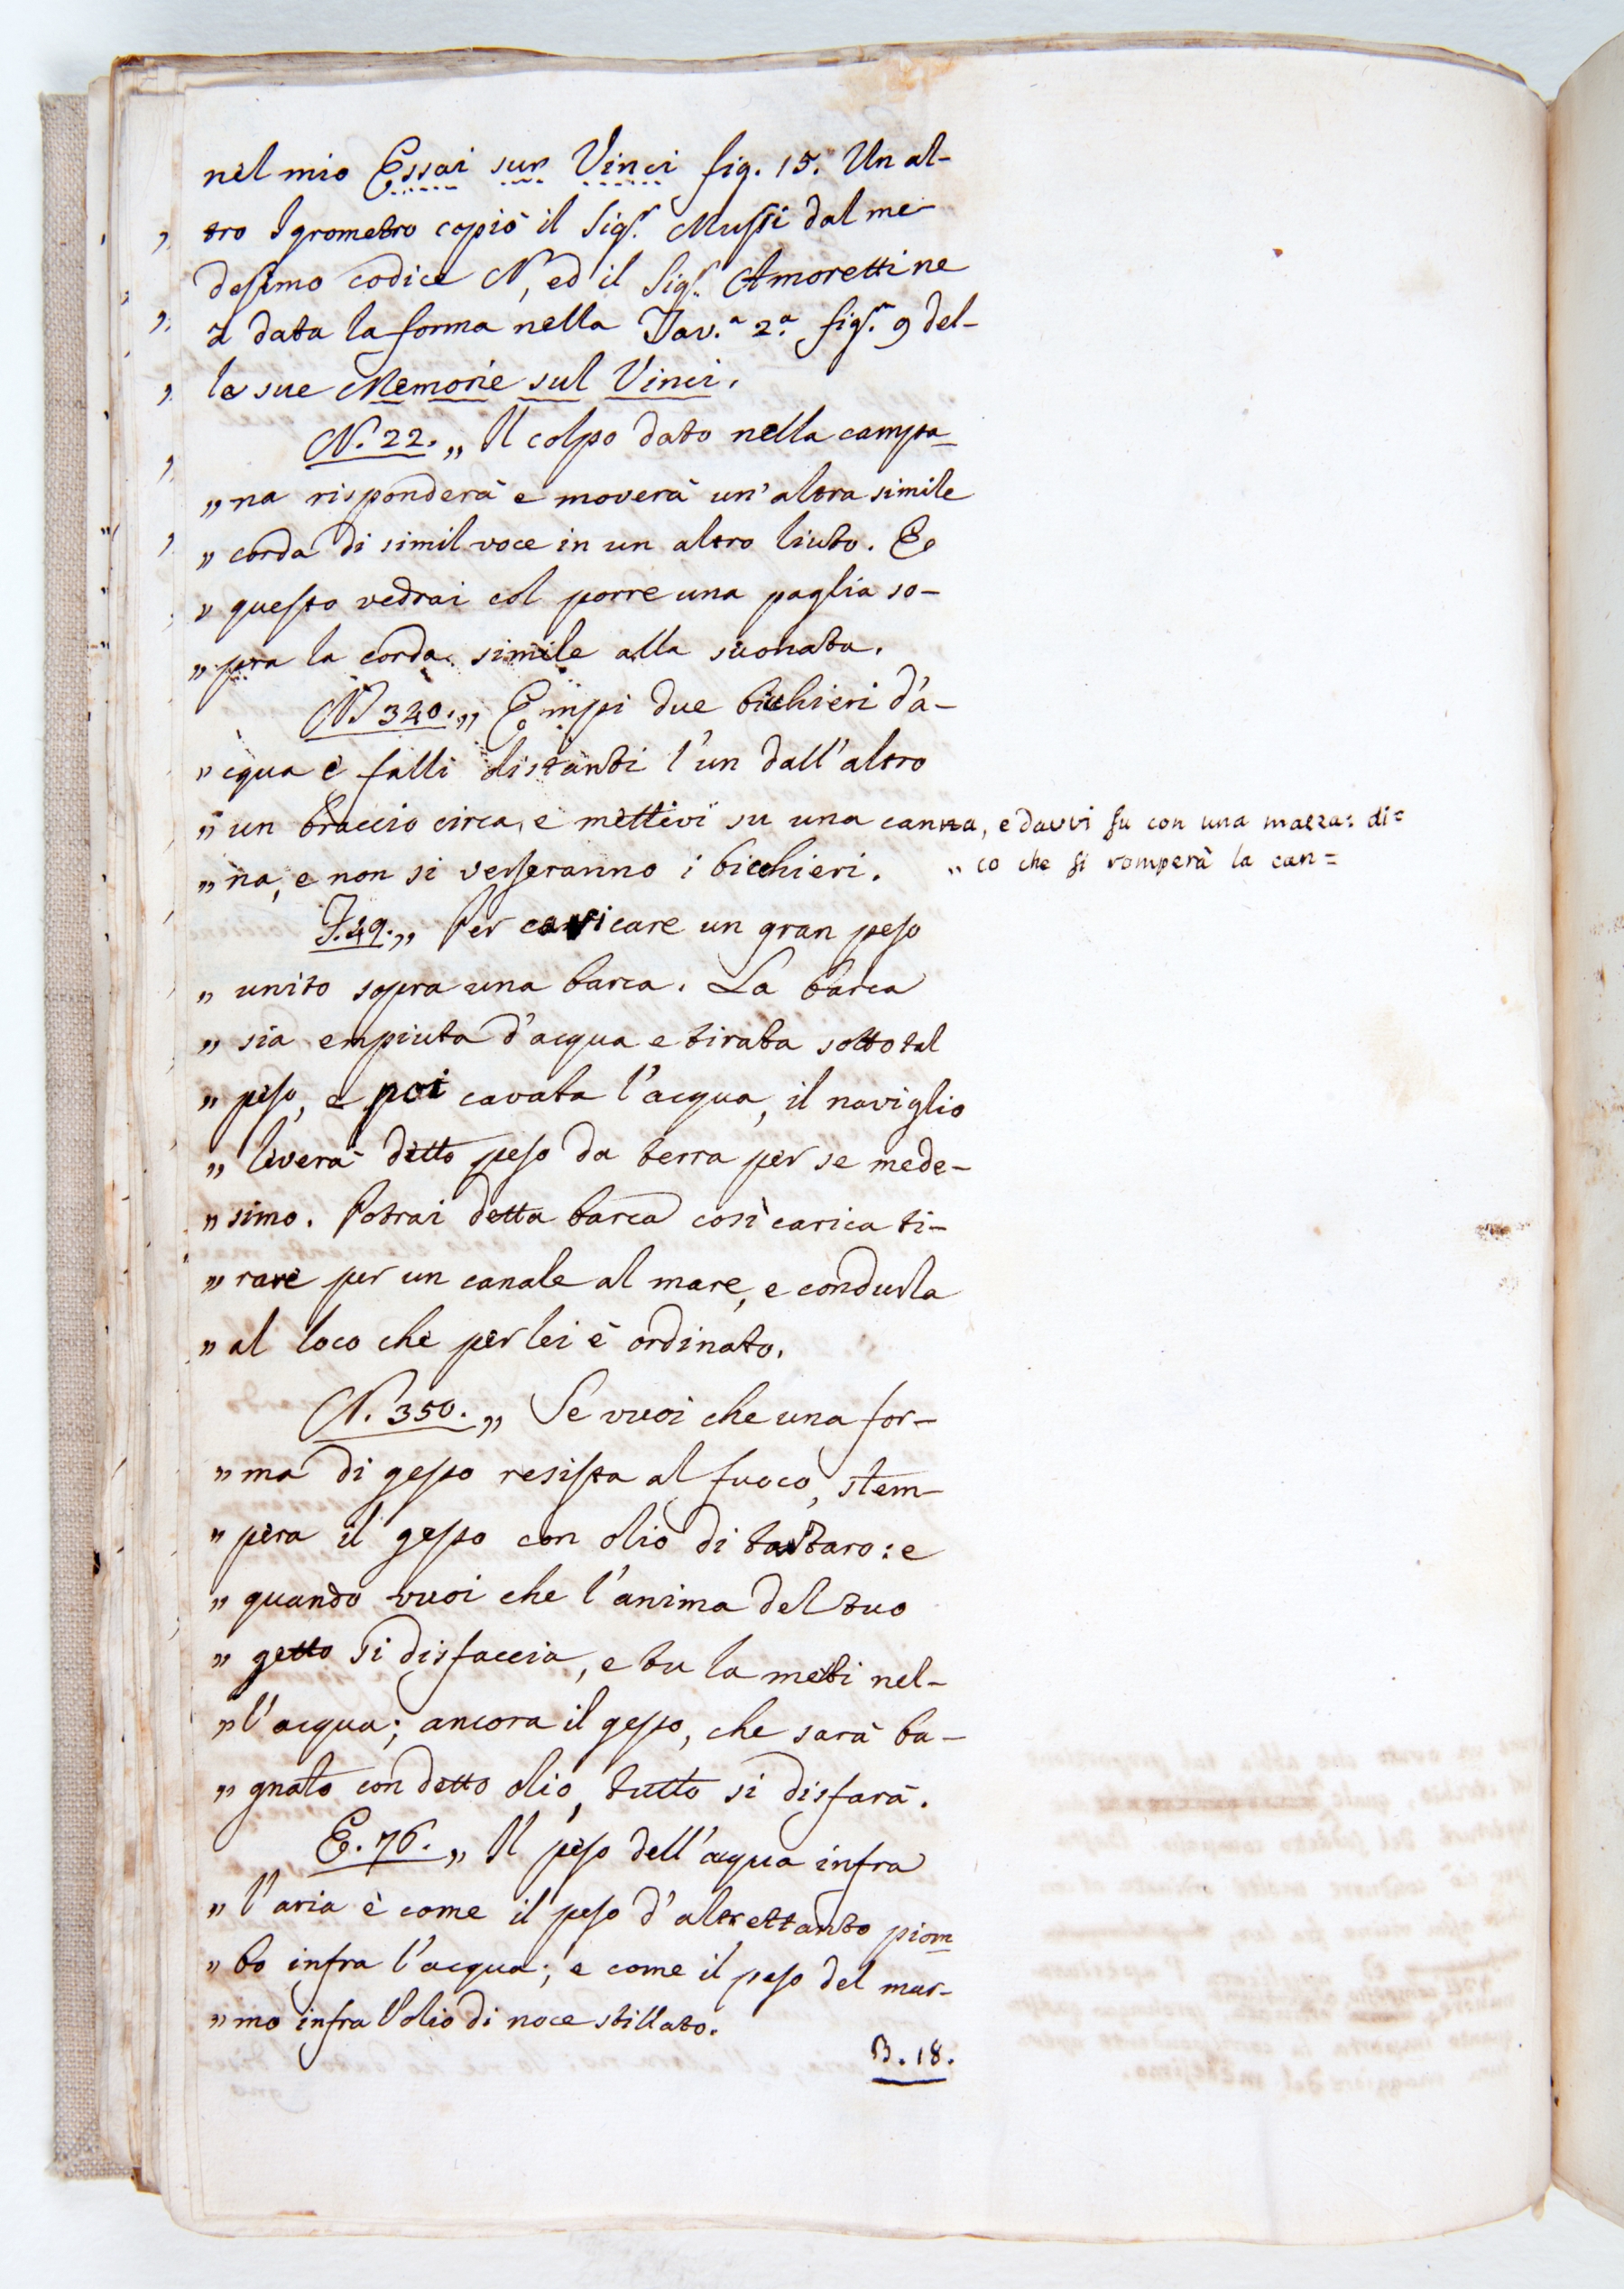 nel mio Essai sur Vinci fig. 15. Un al-
tro Igrometro copiò il Sigr. Mussi dal me-
desimo codice N, ed il Sigr. Amoretti ne
à data la forma nella Tav.a 2.a figr.a 9 del-
le sue Memorie sul Vinci.
N. 22. „ Il colpo dato nella campa-
„ na risponderà e moverà un'altra simile
„ corda di simil voce in un altro liuto. E
„ questo vedrai col porre una paglia so-
„ pra la corda simile alla suonata.
N. 340. „ Empi due bicchieri d'a-
„ cqua e falli distanti l'un dall'altro
„ un braccio circa, e mettivi su una canna, e davvi su con una mazza: di=
„ co che si romperà la can=
„ na, e non si verseranno i bicchieri.
F. 49. „ Per carricare un gran peso
„ unito sopra una barca. La barca
„ sia empiuta d'acqua e tirata sotto tal
„ peso, e poi cavata l'acqua, il naviglio
„ leverà detto peso da terra per se mede-
„ simo. Potrai detta barca così carica ti-
„ rare per un canale al mare, e condurla
„ al loco che per lei è ordinato.
N. 350. „ Se vuoi che una for-
„ ma di gesso resista al fuoco, stem-
„ pera il gesso con olio di tartaro: e
„ quando vuoi che l'anima del tuo
„ getto si disfaccia, e tu la metti nel-
„ l'acqua; ancora il gesso, che sarà ba-
„ gnato con detto olio, tutto si disfarà.
E. 76. „ Il peso dell'acqua infra
„ l'aria è come il peso d'altrettanto piom
„ bo infra l'acqua; e come il peso del mar-
„ mo infra l'olio di noce stillato.
B. 18.